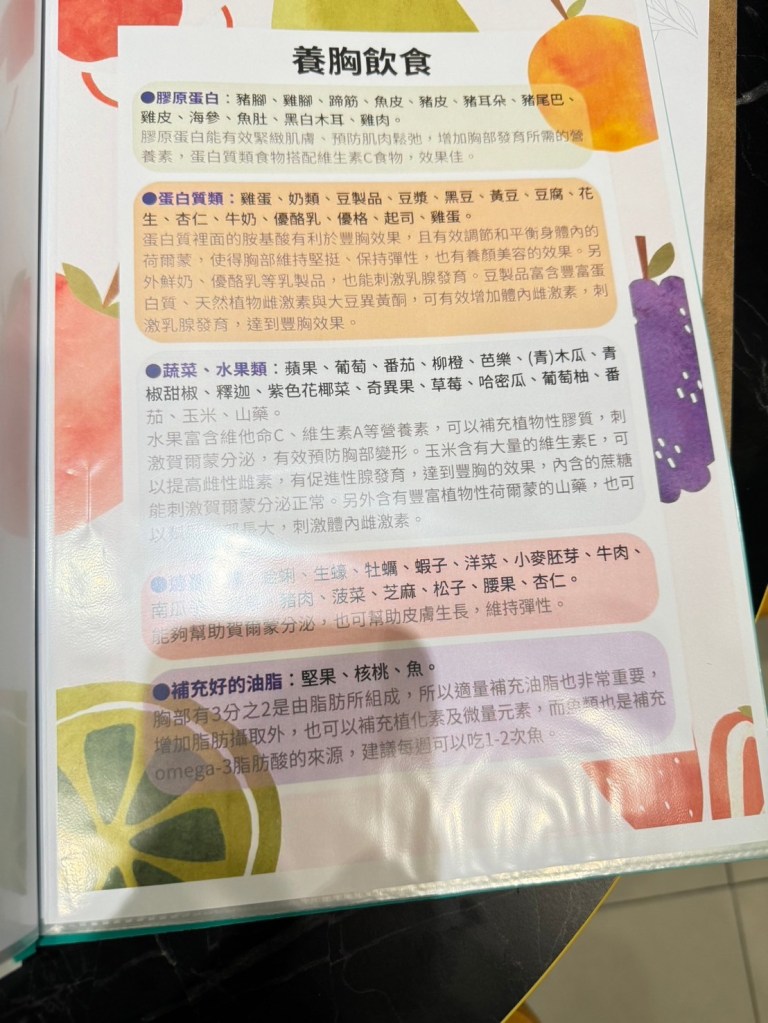 養胸飲食
●膠原蛋白：豬腳、雞腳、蹄筋、魚皮、豬皮、豬耳朵、豬尾巴、
雞皮、海參、魚肚、黑白木耳、雞肉。
膠原蛋白能有效緊緻肌膚、預防肌肉鬆弛，增加胸部發育所需的營
養素，蛋白質類食物搭配維生素C食物，效果佳。
●蛋白質類：雞蛋、奶類、豆製品、豆漿、黑豆、黃豆、豆腐、花
生、杏仁、牛奶、優酪乳、優格、起司、雞蛋。
蛋白質裡面的胺基酸有利於豐胸效果，且有效調節和平衡身體內的
荷爾蒙，使得胸部維持堅挺、保持彈性，也有養顏美容的效果。另
外鮮奶、優酪乳等乳製品，也能刺激乳腺發育。豆製品富含豐富蛋
白質、天然植物雌激素與大豆異黃酮，可有效增加體內雌激素，刺
激乳腺發育，達到豐胸效果。
●蔬菜、水果類：蘋果、葡萄、番茄、柳橙、芭樂、(青)木瓜、青
椒甜椒、釋迦、紫色花椰菜、奇異果、草莓、哈密瓜、葡萄柚、番
茄、玉米、山藥。
水果富含維他命C、維生素A等營養素，可以補充植物性膠質，刺
激賀爾蒙分泌，有效預防胸部變形。玉米含有大量的維生素E，可
以提高雌性雌素，有促進性腺發育，達到豐胸的效果，內含的蔗糖
能刺激賀爾蒙分泌正常。另外含有豐富植物性荷爾蒙的山藥，也可
以 長大，刺激體內雌激素。
● 蛤蜊、生蠔、牡蠣、蝦子、洋菜、小麥胚芽、牛肉、
南瓜 豬肉、菠菜、芝麻、松子、腰果、杏仁。
能夠幫助賀爾蒙分泌，也可幫助皮膚生長，維持彈性。
●補充好的油脂：堅果、核桃、魚。
胸部有3分之2是由脂肪所組成，所以適量補充油脂也非常重要，
增加脂肪攝取外，也可以補充植化素及微量元素，而魚類也是補充
omega-3脂肪酸的來源，建議每週可以吃1-2次魚。